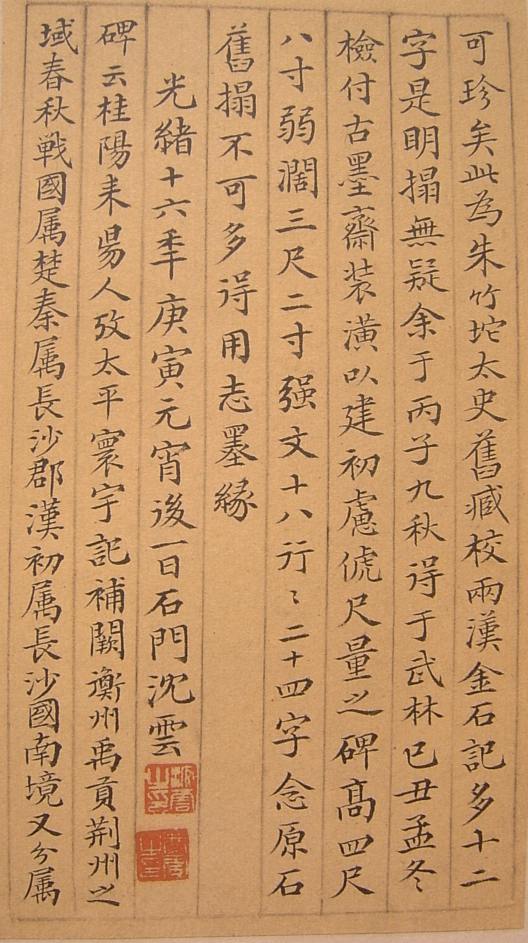 可珍矣此為朱竹坨太史舊臧校兩漢金石記多十二
字是明搨無疑余于丙子九秋得于武林已丑孟冬
檢付古墨齋装潢以建初慮俿尺量之碑高四尺
八寸弱濶三尺二寸强文十八行〻二十四字念原石
舊搨不可多得用志墨緣
光緒十六秊庚寅元宵後一日石門沈雲
碑云桂陽耒昜人攷太平寰宇記補闕衡州禹貢荆州之
域春秋戰國属楚秦属長沙郡漢初属長沙國南境又分属